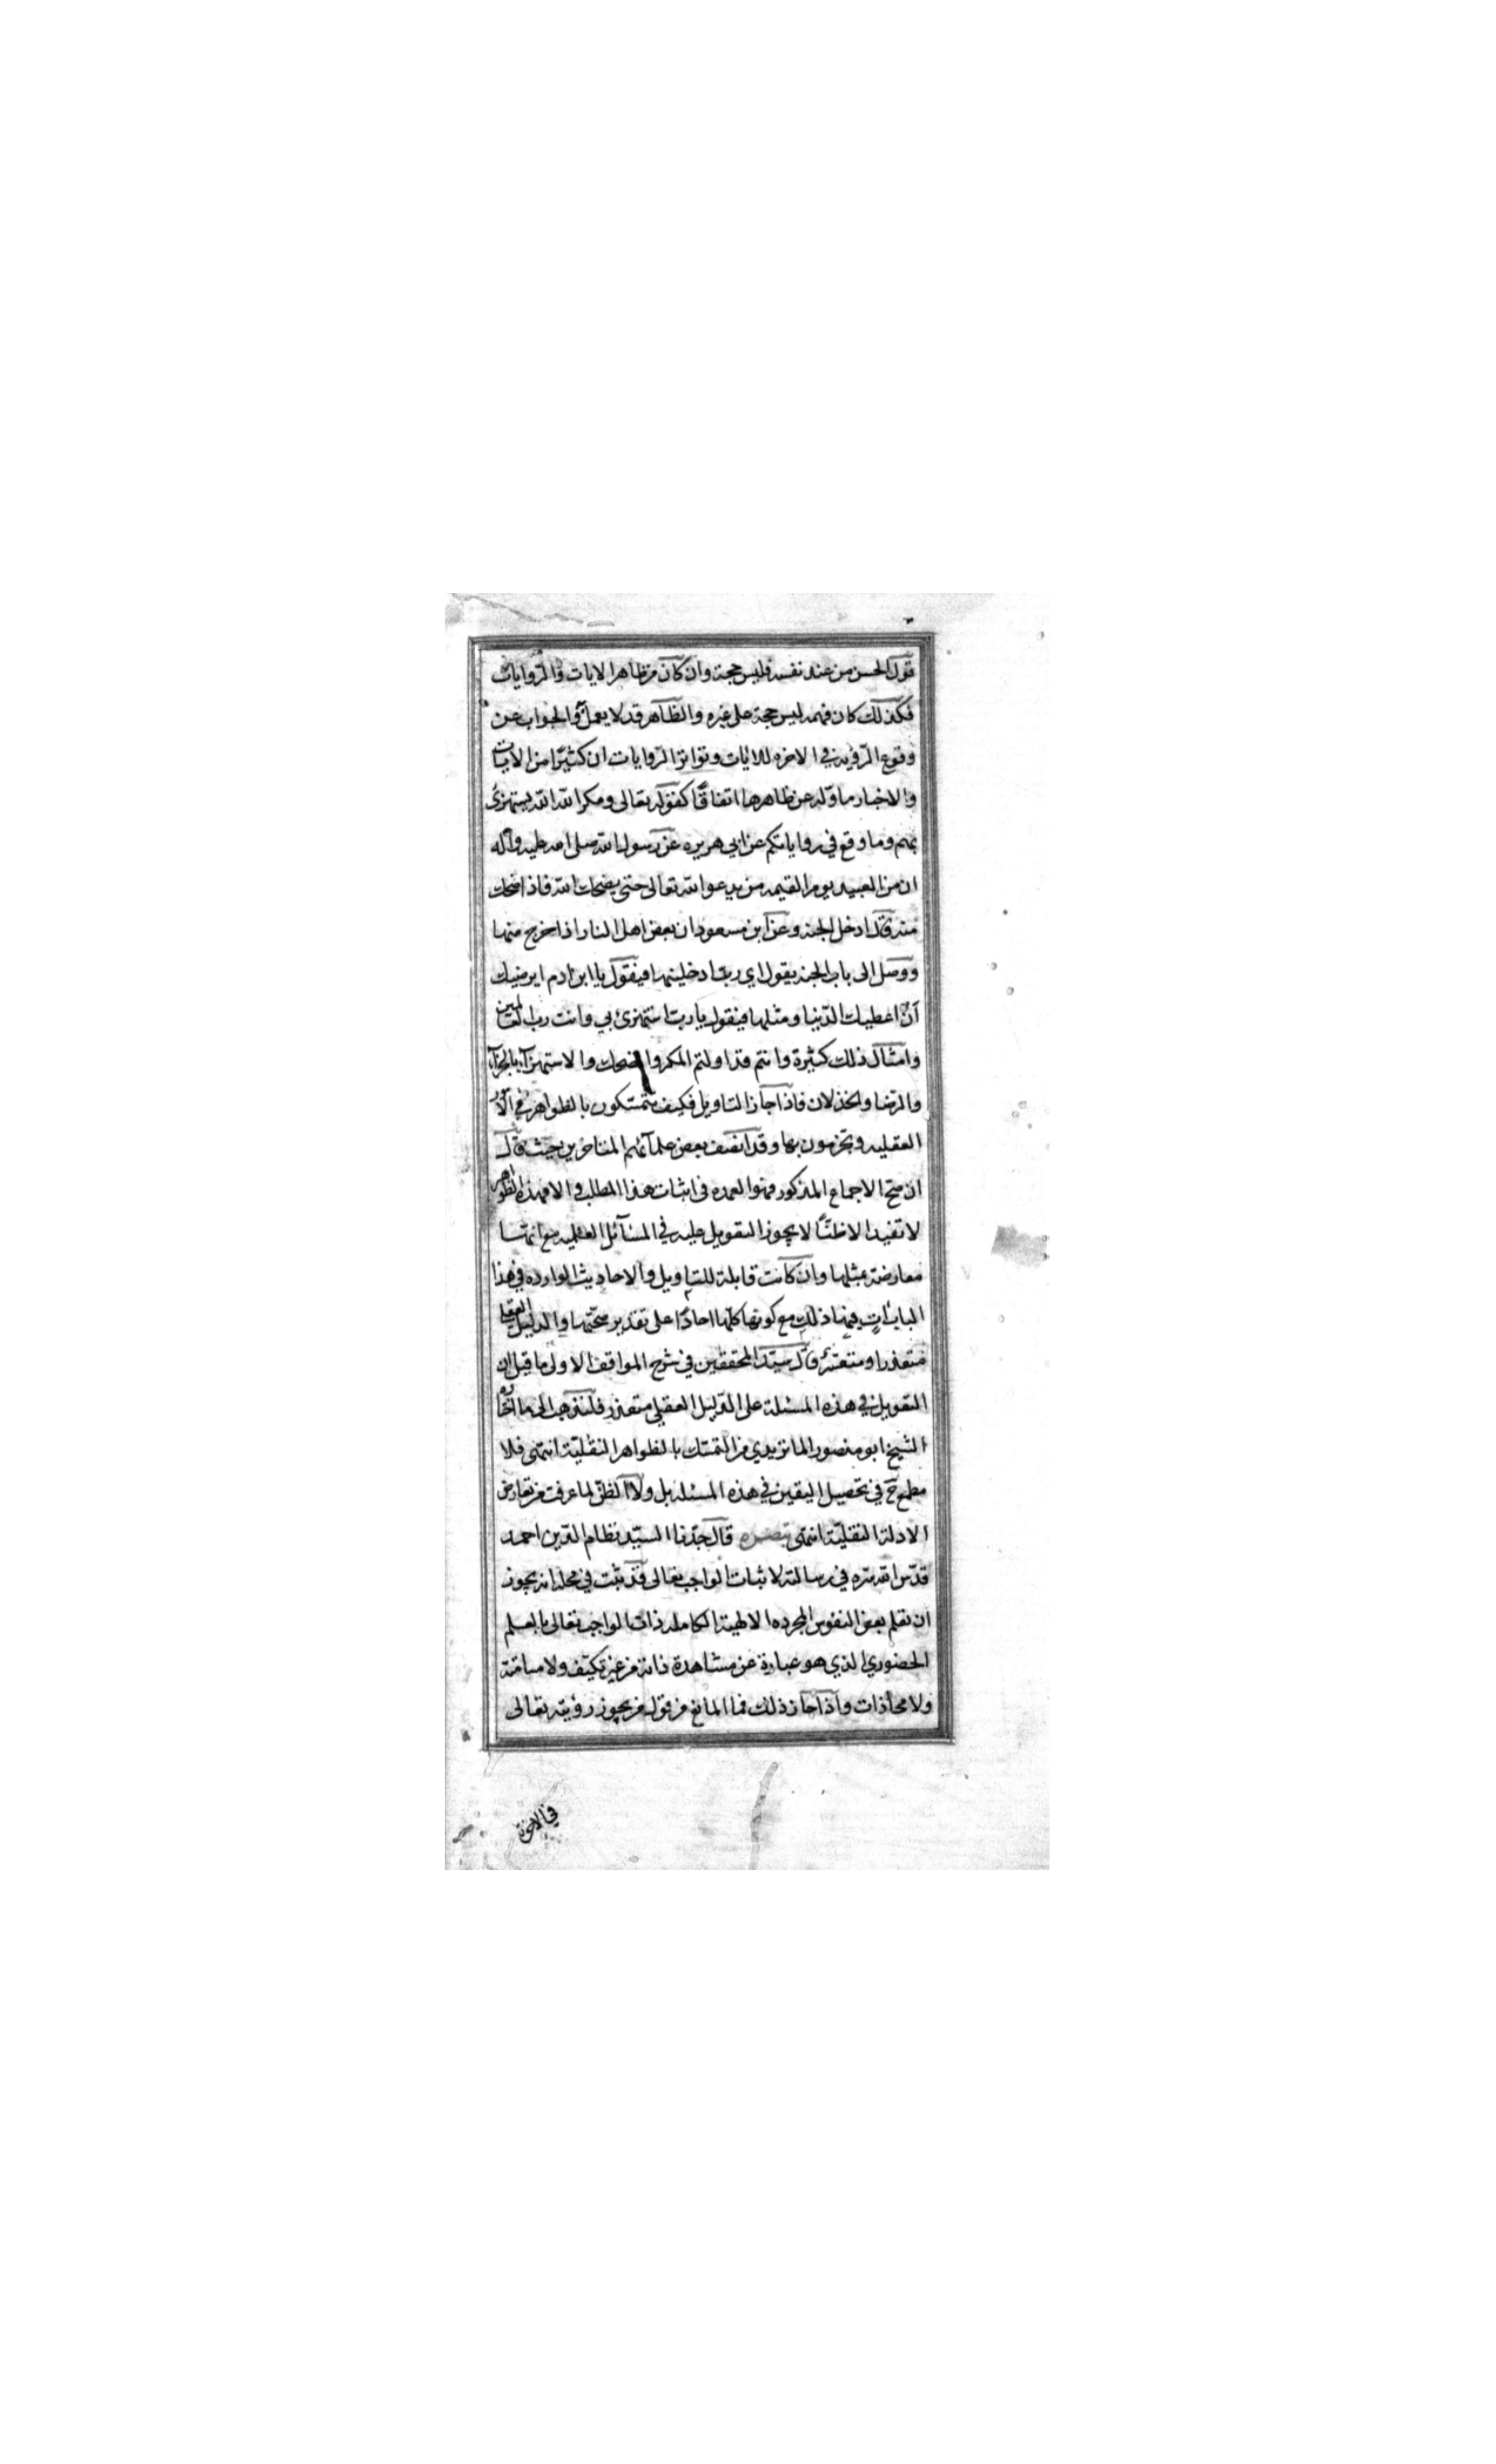 قول الحسن من عند نفسه فليس حجة وان كان من ظاهر الايات والروايات
فكذلك كان فهمه ليس حجة على غيره والظاهر قد لا يعمل والجواب عن
وقوع الرؤية في الاخره للايات وتواتر الروايات ان كثيرا من الايات
والاخبار ماوله عن ظاهرها اتفاقا كقوله تعالى ومكر الله الله يستهزئ
بهم وما وقع في رواياتكم عن ابي هريره عن رسول الله صلى الله عليه وآله
ان من العبيد يوم القيمه من يدعو الله تعالى حتى يضحك الله فاذا ضحك
منه قال ادخل الجنة وعن ابن مسعود ان بعض اهل النار اذا خرج منها
ووصل الى باب الجنة يقول اي رب ادخلينها فيقول يا ابن ادم ايرضيك
ان اعطيك الدنيا ومثلها فيقول يا رب استهزئ بي وانت رب العالمين
وامثال ذلك كثيرة وانتم قد اولتم المكر والضحك والاستهزاء بالجزاء
والرضا والخذلان فاذا جاز التاويل فكيف تتمسكون بالظواهر في
العقليه وتجزمون بها وقد انصف بعض علمآئهم المتاخرين حيث قال
ان صح الاجماع المذكور فهو العمده في اثبات هذا المطلب والا فهذه الظواهر
لا تفيد الا ظنا لا يجوز التعويل عليه في المسآئل العلميه مع انها
معارضة بمثلها وان كانت قابلة للتاويل والاحاديث الوارده في هذا
الباب ات فيها ذلك مع كونها كلها احادا على تقدير صحتها والدليل العقلي
متعذر او متعسر قال سيد المحققين في شرح المواقف الاولى ما قيل ان
التعويل في هذه المسئلة على الدليل العقلي متعذر فلنذهب الى ما اختاره
الشيخ ابو منصور الماتريدي من التمسك بالظواهر النقلية انتهى فلا
مطمح في تحصيل اليقين في هذه المسئله بل ولا الظن لما عرفت من تعارض
الادلة النقلية انتهى تبصره قال جدنا السيد نظام الدين احمد
قدس الله سره في رسالته لاثبات الواجب تعالى قد ثبت في محله انه يجوز
ان تعلم بعض النفوس المجرده الالهية الكامله ذات الواجب تعالى بالعلم
الحضوري الذي هو عبارة عن مشاهدة ذاته من غير تكيف ولا مسامتة
ولا محاذات واذا جاز ذلك فما المانع من قول من يجوز رؤيته تعالى
في الاخرة